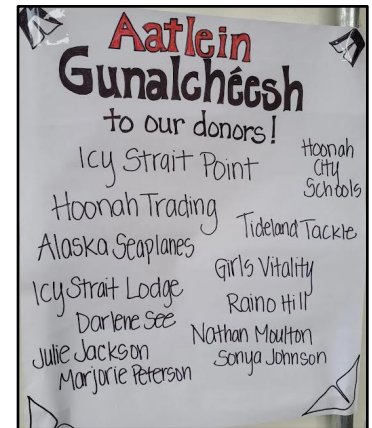 Aatlein
Gunalchéesh
to our donors!
Icy Strait Point
Hoonah
City
Schools
Hoonah Trading
Tideland Tackle
Alaska Seaplanes
Girls Vitality
Icy Strait Lodge
Raino Hill
Darlene See
Nathan Moulton
Julie Jackson
Sonya Johnson
Marjorie Peterson